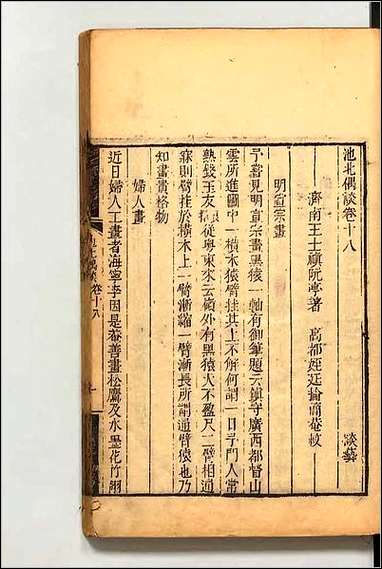 池北偶談卷十八　談藝
濟南王士禛阮亭著　高都　廷掄簡菴校
明宣宗畫
予嘗見明宣宗畫黑猿一軸有御筆題云鎮守廣西都督山
雲所進圖中一橫木猿臂挂其上不解何謂一日予門人常
熟錢玉友　從粵東來云嶺外有黑猿大不盈尺二臂相通
寐則臂挂於橫木上一臂漸縮一臂漸長所謂通臂猿也乃
知畫貴格物
婦人畫
近日婦人工畫者海寧李因是菴善畫松鷹及水墨花竹翎
卷十八